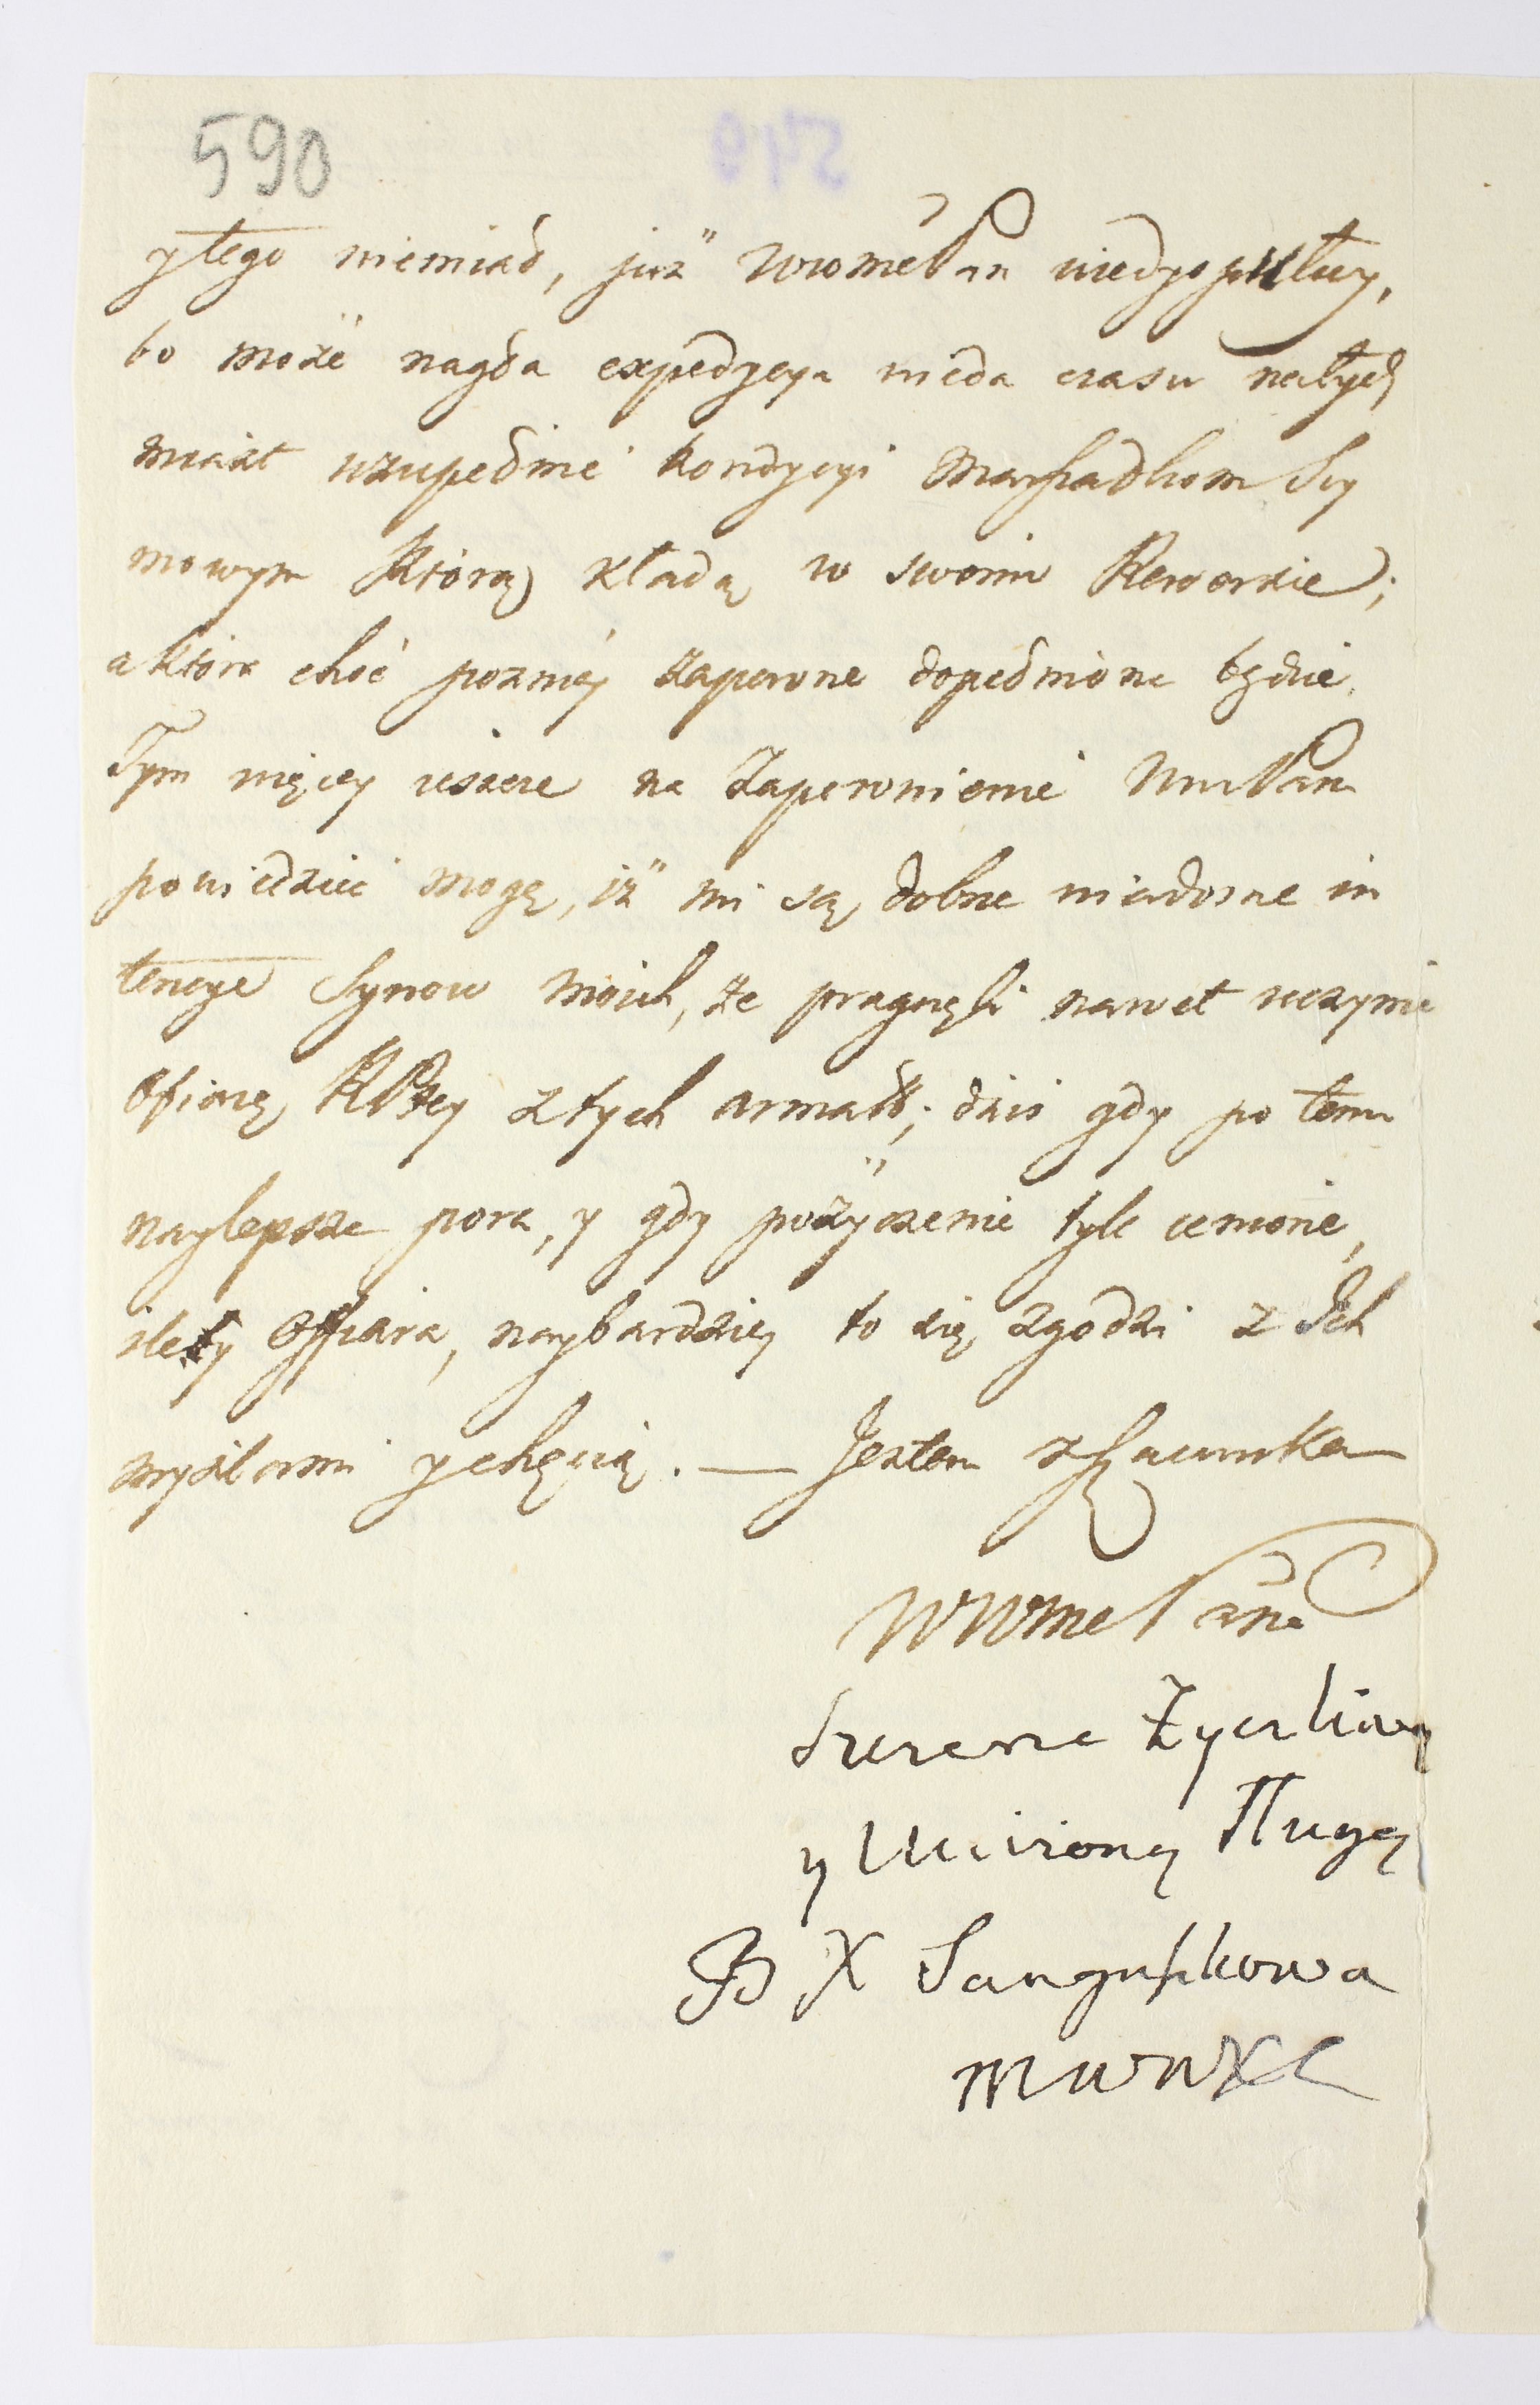 590
y tego niemiał, już WWomć Pan
bo może nagła expedycya nieda czasu natych
miast uzupełnić kondycyi Marszałkom Sey
mowym którą kładą w swoim Rewersie;
a która choć pozniéy zapewne dopełniona będzie.
Tym więcey ieszcze na Zapewnienie Pana
powiedzieć mogę, iż mi są dobrze wiadome in
tencye Synow Moich, że pragnęli nawet uczynić
Ofiarę RPtey z tych armat; dziś gdy po temu
naylepsza pora, y gdy pożyczenie tyle cenione,
ile y offiara, naybardziey to się zgodzi z Ich
myślami y chęcią. — Jestem z szacunkiem
WWMc Pana
Szczerze Życzliwą
y Uniżoną Sługą
B X Sanguszkowa
MWWXL